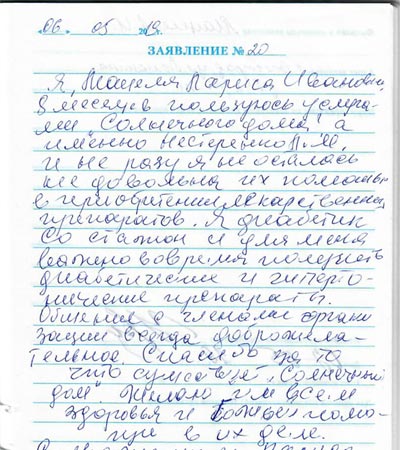 06. 05 2019.
ЗАЯВЛЕНИЕ № 20
Я, Лариса Ивановна,
8 месяцев пользуюсь услуга-
ми „Солнечного дома", а
именно Нестеренко Л.М.
и не разу я не осталась
не довольна их помощью
в приобретении лекарственных
препаратов. Я диабетик
со стажом и для меня
важно вовремя получать
диабетические и гиперто-
нические препараты.
Общение с членами органи
зации всегда доброжела-
тельное Спасибо за то
что существует „Солнечный
дом". Желаю им всем
здоровья и божьей помо-
щи в их деле.